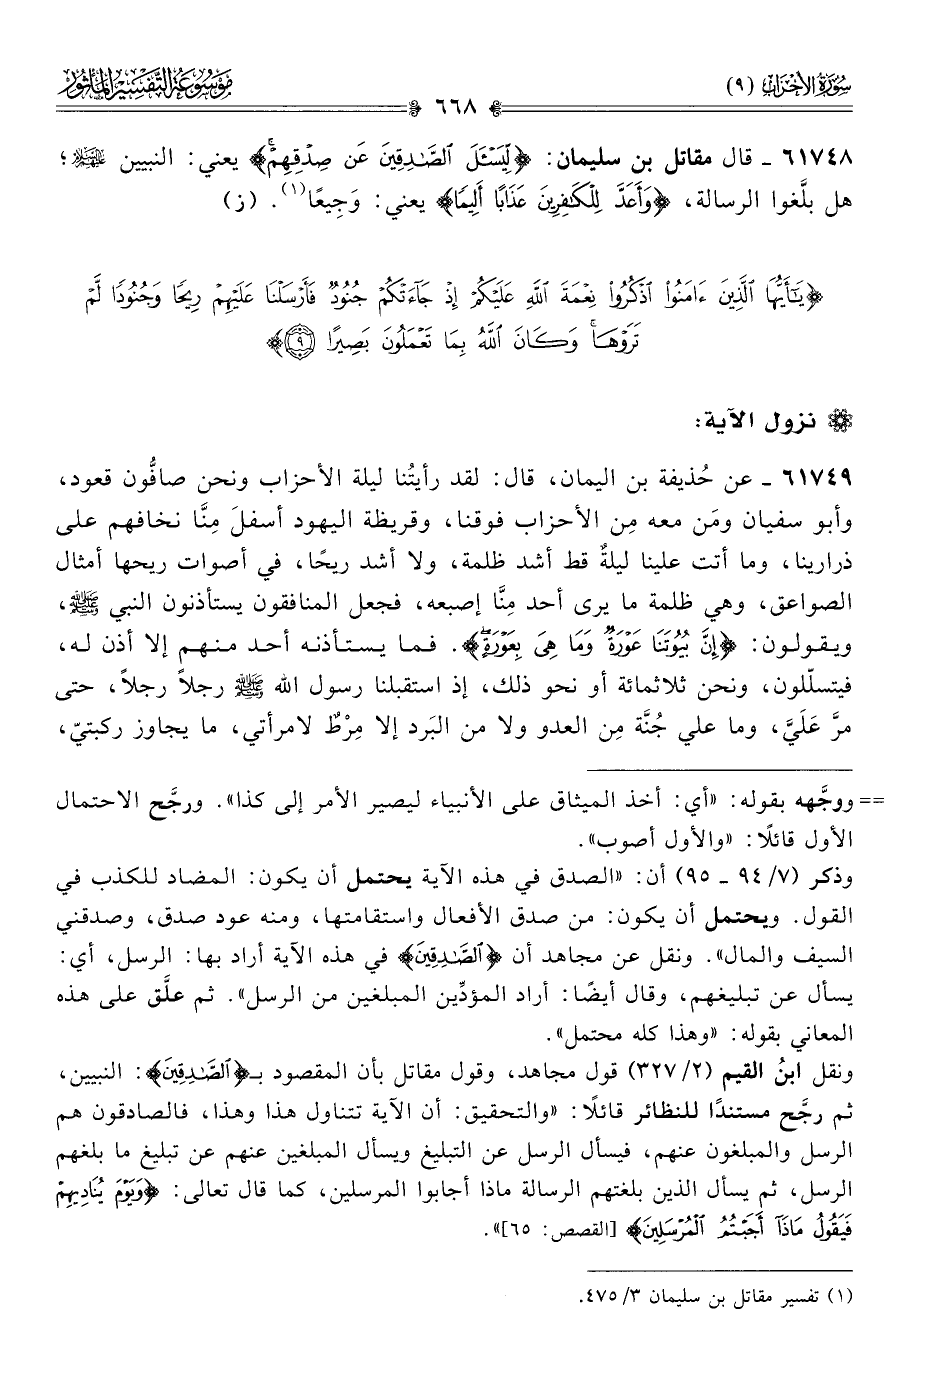 سُورَةُ الأَحْزَابِ (٩)
٦٦٨
مَوْسُوعَةُ التَّفْسِيرِ المَأْثُورِ
٦١٧٤٨ ـ قال مقاتل بن سليمان: ﴿لِّيَسْـَٔلَ ٱلصَّـٰدِقِينَ عَن صِدْقِهِمْۚ﴾ يعني: النبيين ﷺ؛
هل بلَّغوا الرسالة، ﴿وَأَعَدَّ لِلْكَـٰفِرِينَ عَذَابًا أَلِيمًا﴾ يعني: وَجِيعًا(١). (ز)
﴿يَـٰٓأَيُّهَا ٱلَّذِينَ ءَامَنُوا۟ ٱذْكُرُوا۟ نِعْمَةَ ٱللَّهِ عَلَيْكُمْ إِذْ جَآءَتْكُمْ جُنُودٌ فَأَرْسَلْنَا عَلَيْهِمْ رِيحًا وَجُنُودًا لَّمْ
تَرَوْهَاۚ وَكَانَ ٱللَّهُ بِمَا تَعْمَلُونَ بَصِيرًا ٩﴾
نزول الآية:
٦١٧٤٩ ـ عن حُذيفة بن اليمان، قال: لقد رأيتُنا ليلة الأحزاب ونحن صافُّون قعود،
وأبو سفيان ومَن معه مِن الأحزاب فوقنا، وقريظة اليهود أسفلَ مِنَّا نخافهم على
ذرارينا، وما أتت علينا ليلةٌ قط أشد ظلمة، ولا أشد ريحًا، في أصوات ريحها أمثال
الصواعق، وهي ظلمة ما يرى أحد مِنَّا إصبعه، فجعل المنافقون يستأذنون النبي ﷺ،
ويقولون: ﴿إِنَّ بُيُوتَنَا عَوْرَةٌ وَمَا هِىَ بِعَوْرَةٍۖ﴾. فما يستأذنه أحد منهم إلا أذن له،
فيتسلّلون، ونحن ثلاثمائة أو نحو ذلك، إذ استقبلنا رسول الله ﷺ رجلاً رجلاً، حتى
مرَّ عَلَيَّ، وما علي جُنَّة مِن العدو ولا من البَرد إلا مِرْطٌ لامرأتي، ما يجاوز ركبتيّ،
== ووجَّهه بقوله: «أي: أخذ الميثاق على الأنبياء ليصير الأمر إلى كذا». ورجَّح الاحتمال
الأول قائلًا: «والأول أصوب».
وذكر (٧/ ٩٤ ـ ٩٥) أن: «الصدق في هذه الآية يحتمل أن يكون: المضاد للكذب في
القول. ويحتمل أن يكون: من صدق الأفعال واستقامتها، ومنه عود صدق، وصدقني
السيف والمال». ونقل عن مجاهد أن ﴿ٱلصَّـٰدِقِينَ﴾ في هذه الآية أراد بها: الرسل، أي:
يسأل عن تبليغهم، وقال أيضًا: أراد المؤدِّين المبلغين من الرسل». ثم علَّق على هذه
المعاني بقوله: «وهذا كله محتمل».
ونقل ابنُ القيم (٢/ ٣٢٧) قول مجاهد، وقول مقاتل بأن المقصود بـ﴿ٱلصَّـٰدِقِينَ﴾: النبيين،
ثم رجَّح مستندًا للنظائر قائلًا: «والتحقيق: أن الآية تتناول هذا وهذا، فالصادقون هم
الرسل والمبلغون عنهم، فيسأل الرسل عن التبليغ ويسأل المبلغين عنهم عن تبليغ ما بلغهم
الرسل، ثم يسأل الذين بلغتهم الرسالة ماذا أجابوا المرسلين، كما قال تعالى: ﴿وَيَوْمَ يُنَادِيهِمْ
فَيَقُولُ مَاذَآ أَجَبْتُمُ ٱلْمُرْسَلِينَ﴾ [القصص: ٦٥]».
(١) تفسير مقاتل بن سليمان ٣/ ٤٧٥.